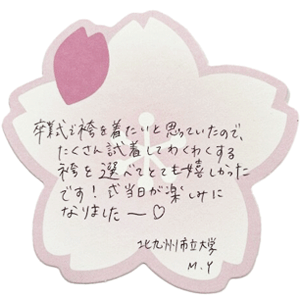 卒業式で袴を着たいと思っていたので、
たくさん試着してわくわくする
袴を選べてとても嬉しかった
です！式当日が楽しみに
なりました〜♡
北九州市立大学
M.Y